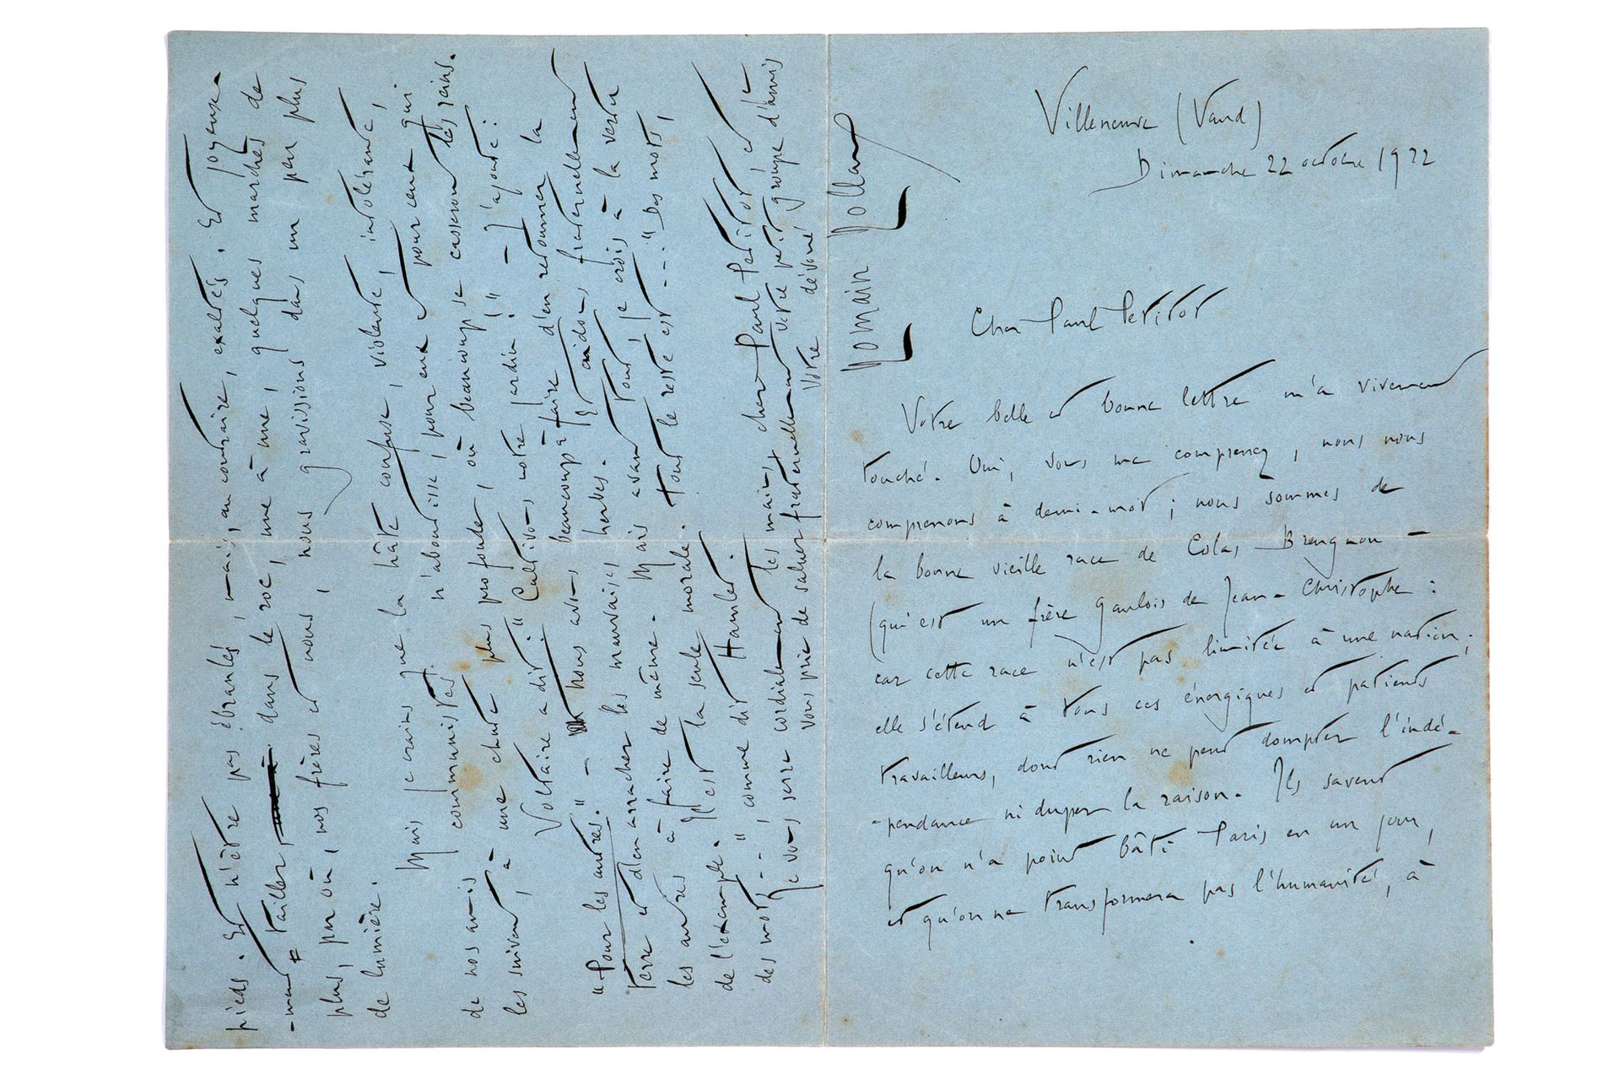 Villeneuve (Vaud)
Dimanche 22 octobre 1922
Cher Paul Petitot
Votre belle et bonne lettre m'a vivement
touché. Oui, vous me comprenez, nous nous
comprenons à demi-mot ; nous sommes de
la bonne vieille race de Colas Breugnon –
(qui est un frère gaulois de Jean-Christophe :
car cette race n'est pas limitée à une nation ;
elle s'étend à tous ces énergiques et patients
travailleurs, dont rien ne peut dompter l'indé-
-pendance ni duper la raison. Ils savent
qu'on n'a point bâti Paris en un jour,
et qu'on ne transformera pas l'humanité, à
pieds. Et n'être pas ébranlés, mais, au contraire, exaltés. Et joyeuse-
-ment tailler dans le roc, une à une, quelques marches de
plus, par où, nos frères et nous, nous gravissions dans un peu plus
de lumière.
Mais je crains que la hâte confuse, violente, intolérante,
de nos amis communistes n'aboutisse, pour eux et pour ceux qui
les suivent, à une chute plus profonde, où beaucoup se casseront les reins.
Voltaire a dit : " Cultivons notre jardin ! " – J'ajoute :
" Pour les autres. " – nous avons beaucoup à faire d'en retourner la
terre et d'en arracher les mauvaises herbes. Et aidons fraternellement
les autres à faire de même. Mais avant tout, je crois à la vertu
de l'exemple. Il est la seule morale. Tout le reste est... " Des mots,
des mots... ", comme dit Hamlet.
Je vous serre cordialement les mains, cher Paul Petitot, et
vous prie de saluer fraternellement votre petit groupe d'amis
Votre dévoué
Romain Rolland